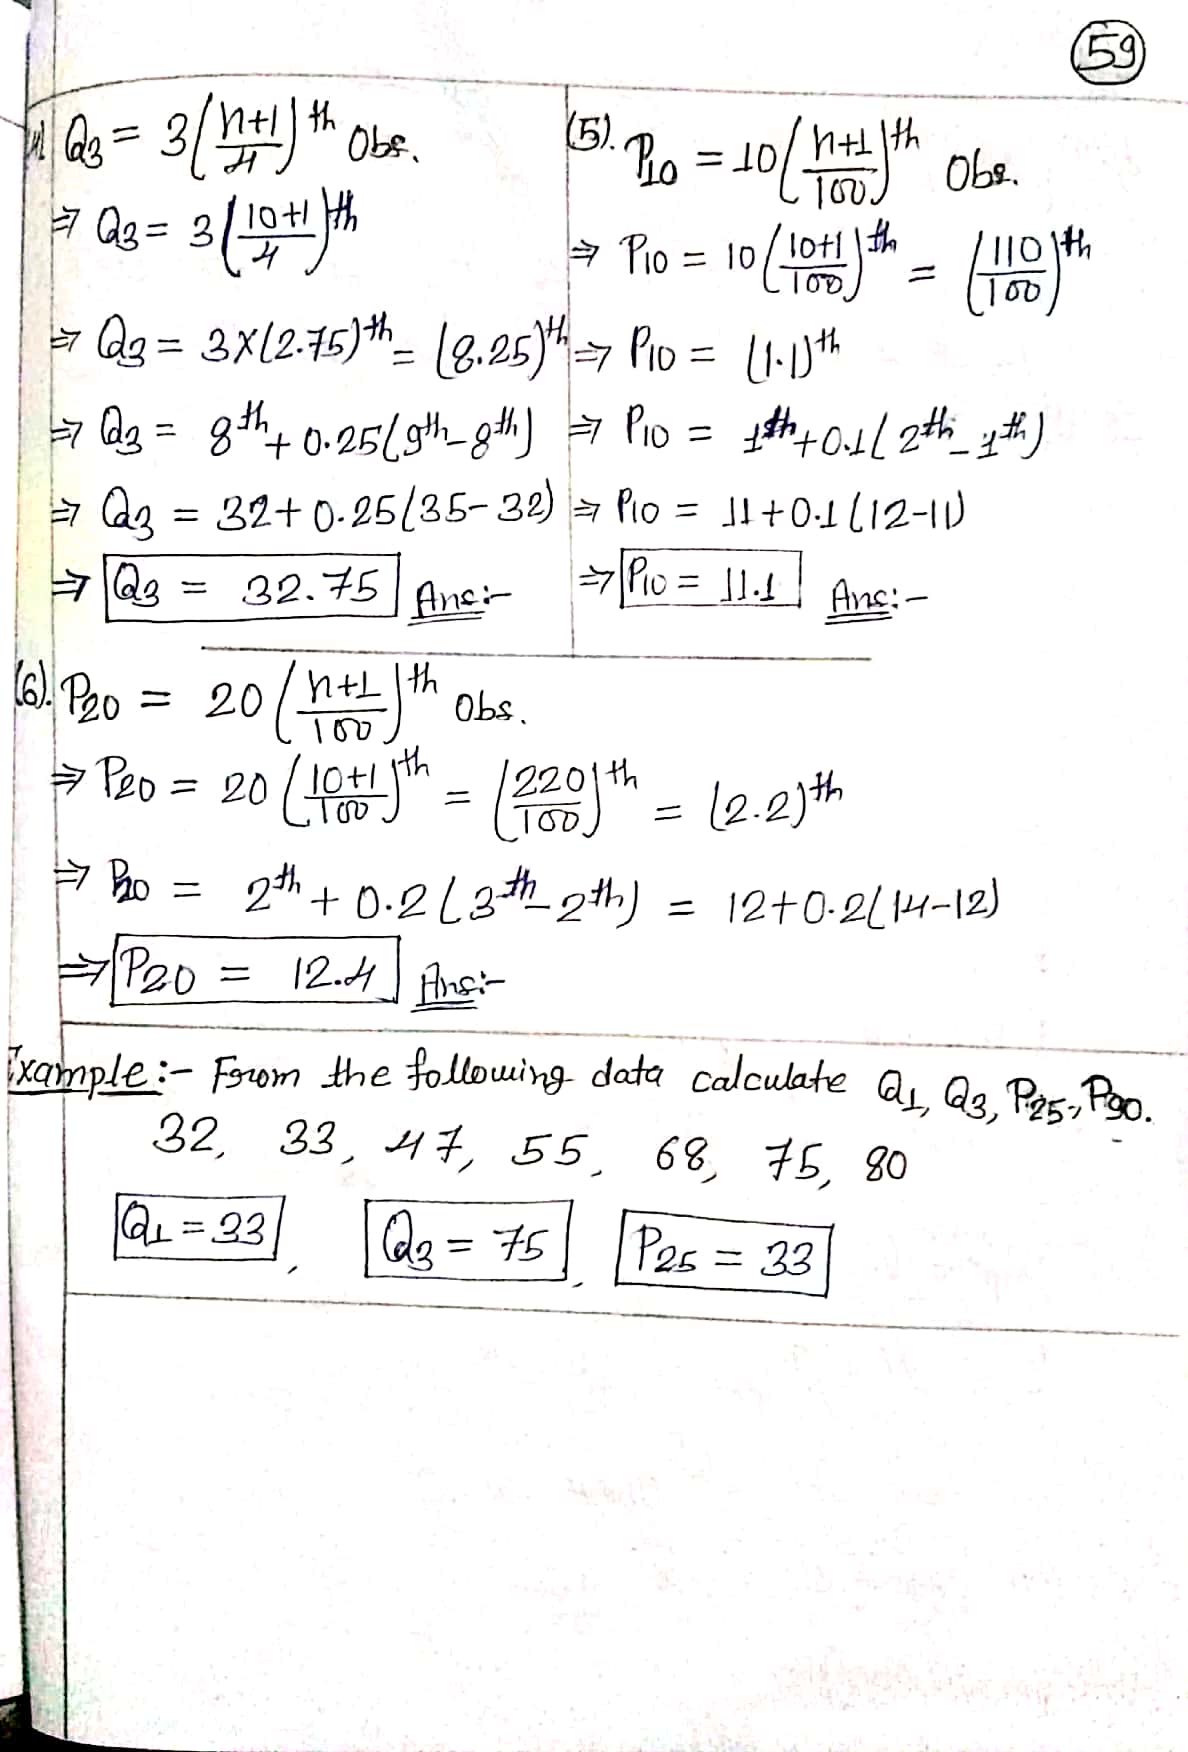 59
Q3 = 3(n+1/4)th Obs.
⇒ Q3 = 3(10+1/4)th
⇒ Q3 = 3×(2.75)th = (8.25)th
⇒ Q3 = 8th + 0.25(9th - 8th)
⇒ Q3 = 32 + 0.25(35 - 32)
⇒ Q3 = 32.75 Ans:-
(5). P10 = 10(n+1/100)th Obs.
⇒ P10 = 10(10+1/100)th = (110/100)th
⇒ P10 = (1.1)th
⇒ P10 = 1th + 0.1(2th - 1th)
⇒ P10 = 11 + 0.1(12-11)
⇒ P10 = 11.1 Ans:-
(6). P20 = 20(n+1/100)th Obs.
⇒ P20 = 20(10+1/100)th = (220/100)th = (2.2)th
⇒ P20 = 2th + 0.2(3th - 2th) = 12+0.2(14-12)
⇒ P20 = 12.4 Ans:-
Example:- From the following data calculate Q1, Q3, P25, P90.
32, 33, 47, 55, 68, 75, 80
Q1 = 33, Q3 = 75, P25 = 33